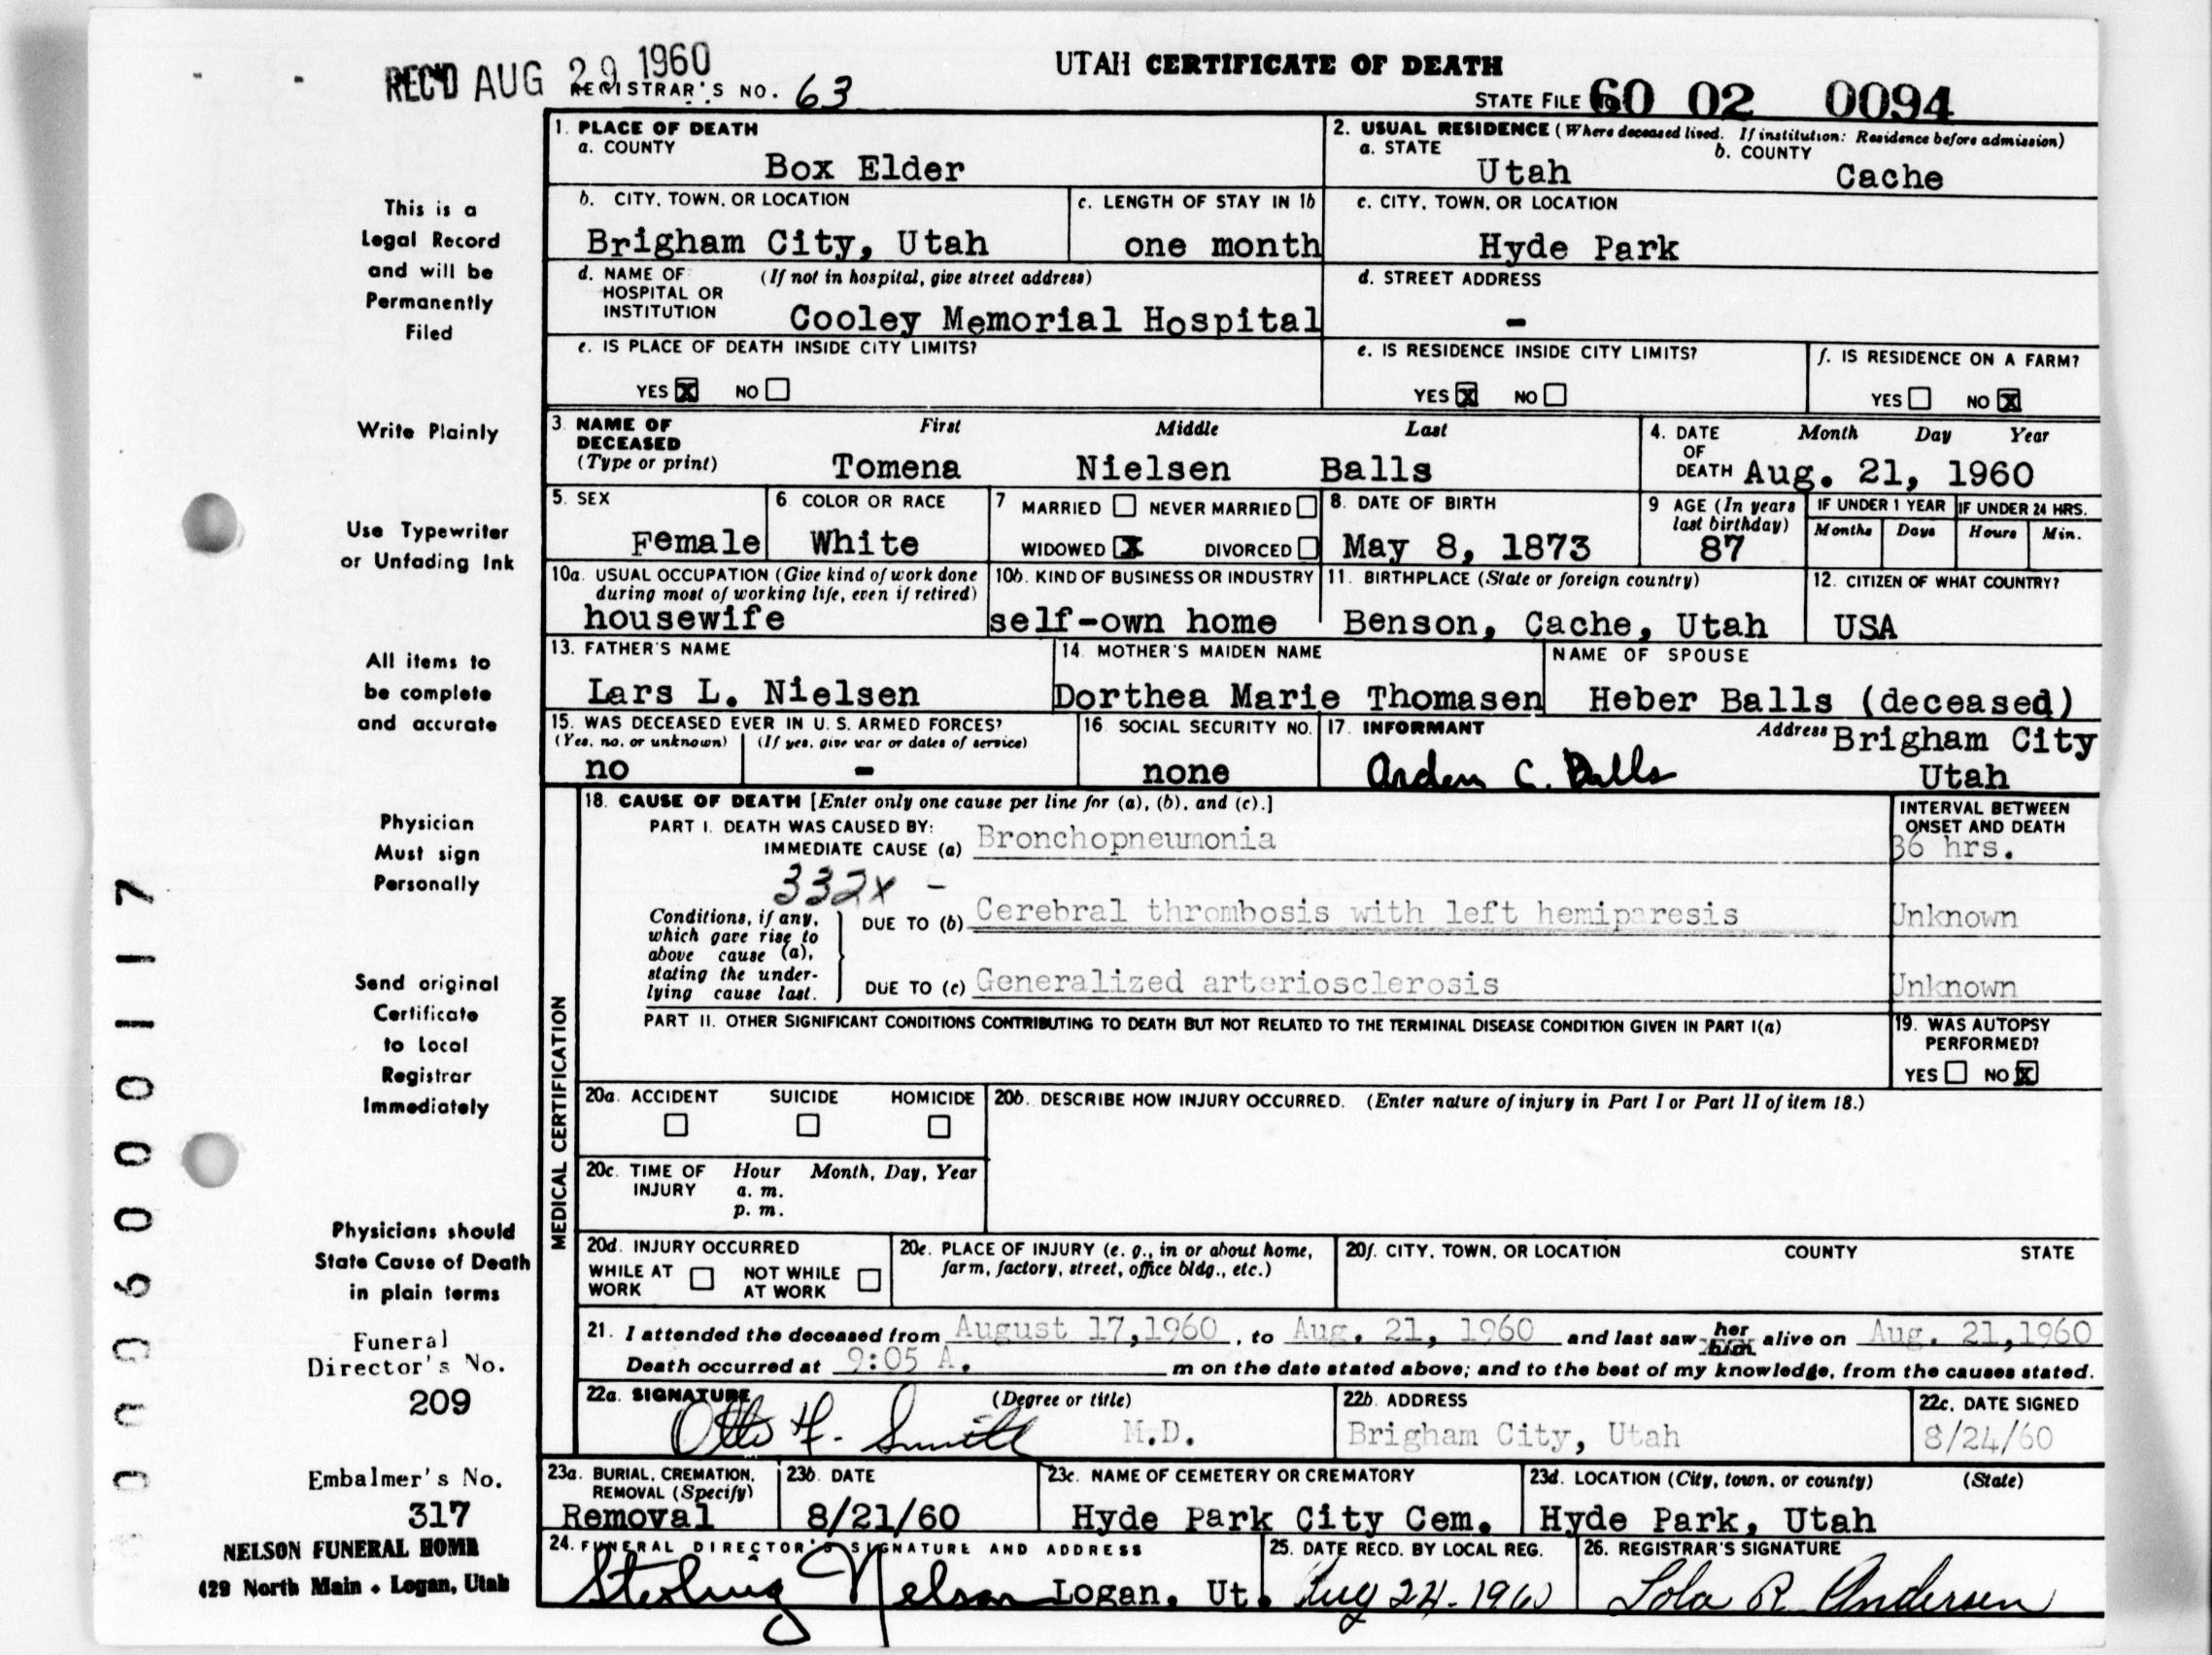 REC'D AUG 29 1960
REGISTRAR'S NO. 63
UTAH CERTIFICATE OF DEATH
STATE FILE 60 02 0094
This is a
Legal Record
and will be
Permanently
Filed
Write Plainly
Use Typewriter
or Unfading Ink
All items to
be complete
and accurate
Physician
Must sign
Personally
Send original
Certificate
to Local
Registrar
Immediately
Physicians should
State Cause of Death
in plain terms
Funeral
Director's No.
209
Embalmer's No.
317
NELSON FUNERAL HOME
429 North Main • Logan, Utah
1. PLACE OF DEATH
a. COUNTY
Box Elder
2. USUAL RESIDENCE (Where deceased lived. If institution: Residence before admission)
a. STATE b. COUNTY
Utah Cache
b. CITY, TOWN, OR LOCATION
Brigham City, Utah
c. LENGTH OF STAY IN 1b
one month
c. CITY, TOWN, OR LOCATION
Hyde Park
d. NAME OF (If not in hospital, give street address)
HOSPITAL OR
INSTITUTION
Cooley Memorial Hospital
d. STREET ADDRESS
-
e. IS PLACE OF DEATH INSIDE CITY LIMITS?
YES X NO
e. IS RESIDENCE INSIDE CITY LIMITS?
YES X NO
f. IS RESIDENCE ON A FARM?
YES NO X
3. NAME OF First Middle Last
DECEASED
(Type or print) Tomena Nielsen Balls
4. DATE Month Day Year
OF
DEATH Aug. 21, 1960
5. SEX
Female
6. COLOR OR RACE
White
7 MARRIED NEVER MARRIED
WIDOWED X DIVORCED
8. DATE OF BIRTH
May 8, 1873
9 AGE (In years
last birthday)
87
IF UNDER 1 YEAR
Months Days
IF UNDER 24 HRS.
Hours Min.
10a. USUAL OCCUPATION (Give kind of work done
during most of working life, even if retired)
housewife
10b. KIND OF BUSINESS OR INDUSTRY
self-own home
11. BIRTHPLACE (State or foreign country)
Benson, Cache, Utah
12. CITIZEN OF WHAT COUNTRY?
USA
13. FATHER'S NAME
Lars L. Nielsen
14. MOTHER'S MAIDEN NAME
Dorthea Marie Thomasen
NAME OF SPOUSE
Heber Balls (deceased)
15. WAS DECEASED EVER IN U. S. ARMED FORCES?
(Yes, no, or unknown) (If yes, give war or dates of service)
no -
16. SOCIAL SECURITY NO.
none
17. INFORMANT Address
Arden C. Balls Brigham City
Utah
MEDICAL CERTIFICATION
18. CAUSE OF DEATH [Enter only one cause per line for (a), (b), and (c).]
INTERVAL BETWEEN
ONSET AND DEATH
PART I. DEATH WAS CAUSED BY:
IMMEDIATE CAUSE (a) Bronchopneumonia 36 hrs.
332X -
Conditions, if any,
which gave rise to
above cause (a),
stating the under-
lying cause last.
DUE TO (b) Cerebral thrombosis with left hemiparesis Unknown
DUE TO (c) Generalized arteriosclerosis Unknown
PART II. OTHER SIGNIFICANT CONDITIONS CONTRIBUTING TO DEATH BUT NOT RELATED TO THE TERMINAL DISEASE CONDITION GIVEN IN PART I(a)
19. WAS AUTOPSY
PERFORMED?
YES NO X
20a. ACCIDENT SUICIDE HOMICIDE
20b. DESCRIBE HOW INJURY OCCURRED. (Enter nature of injury in Part I or Part II of item 18.)
20c. TIME OF Hour Month, Day, Year
INJURY a. m.
p. m.
20d. INJURY OCCURRED
WHILE AT NOT WHILE
WORK AT WORK
20e. PLACE OF INJURY (e. g., in or about home,
farm, factory, street, office bldg., etc.)
20f. CITY, TOWN, OR LOCATION COUNTY STATE
21. I attended the deceased from August 17,1960, to Aug. 21, 1960 and last saw her him alive on Aug. 21,1960
Death occurred at 9:05 A. m on the date stated above; and to the best of my knowledge, from the causes stated.
22a. SIGNATURE (Degree or title)
Otto F. Smith M.D.
22b. ADDRESS
Brigham City, Utah
22c. DATE SIGNED
8/24/60
23a. BURIAL, CREMATION,
REMOVAL (Specify)
Removal
23b. DATE
8/21/60
23c. NAME OF CEMETERY OR CREMATORY
Hyde Park City Cem.
23d. LOCATION (City, town, or county) (State)
Hyde Park, Utah
24. FUNERAL DIRECTOR'S SIGNATURE AND ADDRESS
Sterling Nelson Logan, Ut.
25. DATE RECD. BY LOCAL REG.
Aug 24-1960
26. REGISTRAR'S SIGNATURE
Lola R. Andersen